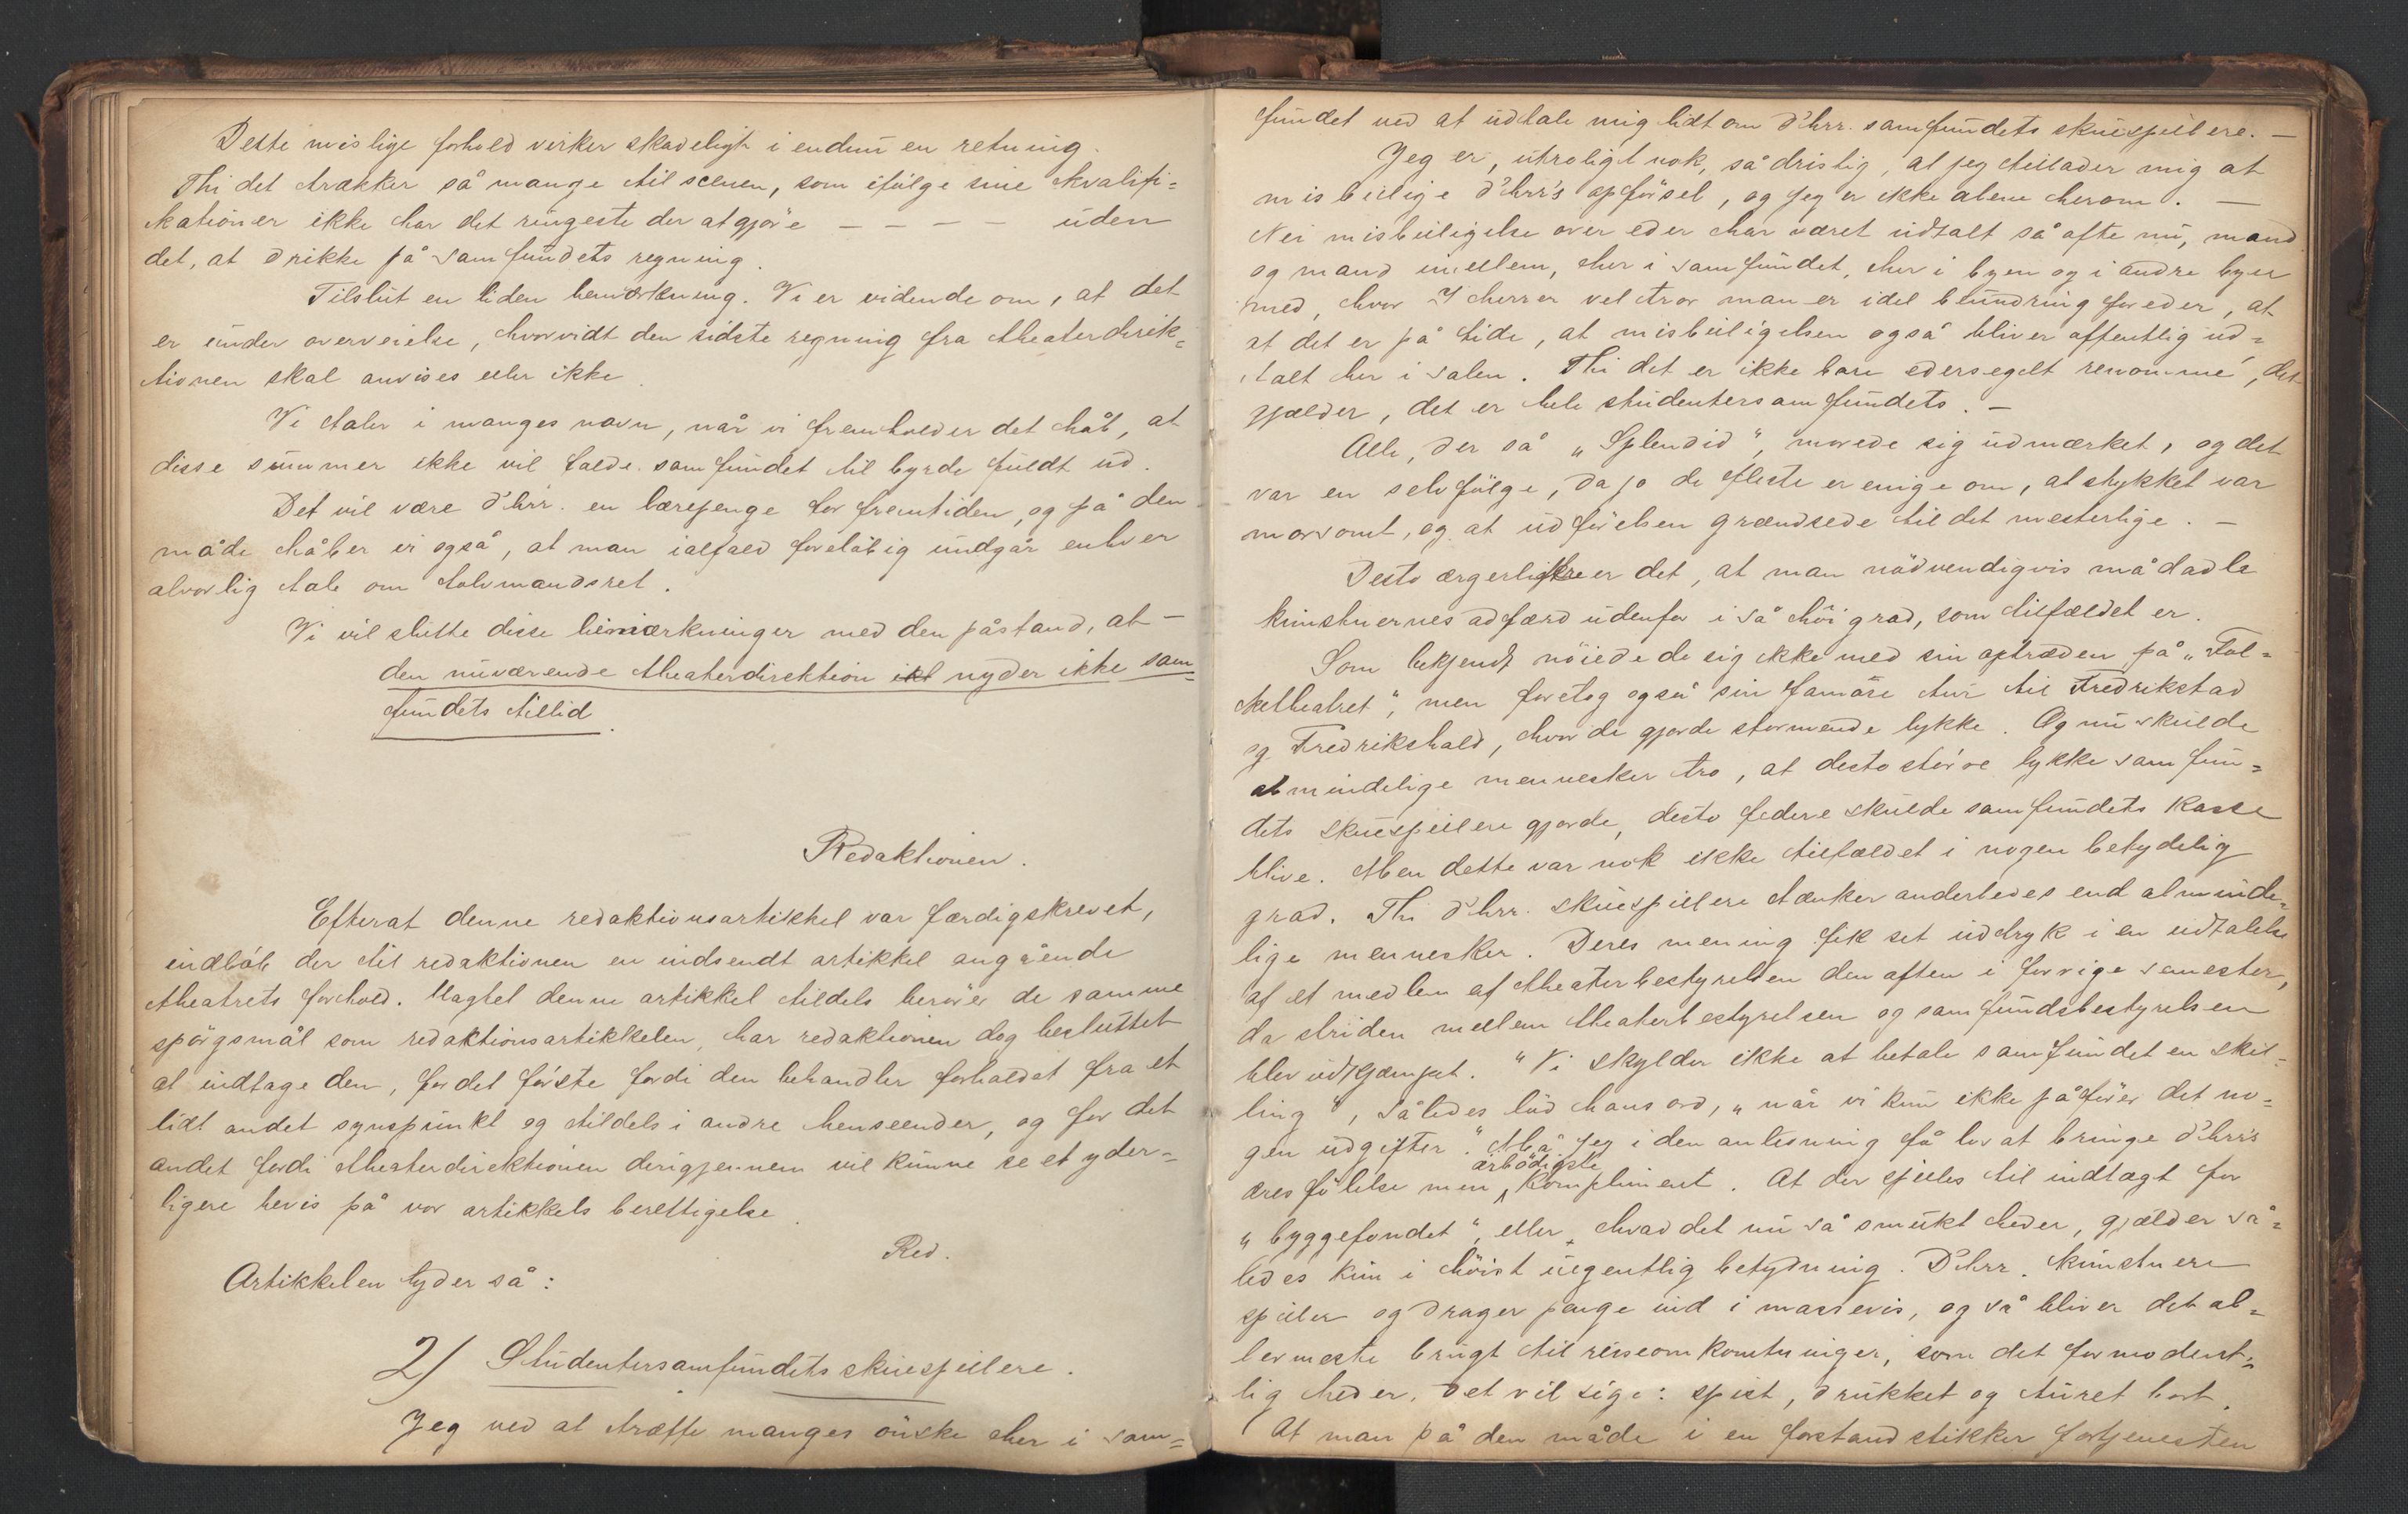 Dette mislige forhold virker skadeligt i endnu en retning.
Thi det trækker så mange til scenen, som ifölge sine kvalifi=
kationer ikke har det ringeste der at gjöre – – – – uden
det, at drikke på samfundets regning.
Tilslut en liden bemærkning. Vi er vidende om, at det
er under overveielse, hvorvidt den sidste regning fra theaterdirek=
tionen skal anvises eller ikke.
Vi taler i manges navn, når vi fremholder det håb, at
disse summer ikke vil falde samfundet til byrde fuldt ud.
Det vil være d'hrr. en lærepenge for fremtiden, og på den
måde håber vi også, at man ialfald foreløbig undgår enhver
alvorlig tale om tolvmandsret.
Vi vil slutte disse bemærkninger med den påstand, at –
den nuværende theaterdirektion ikk nyder ikke sam=
fundets tillid.
Redaktionen.
Efterat denne redaktionsartikkel var færdigskrevet,
indløb der til redaktionen en indsendt artikkel angående
theatrets forhold. Uagtet denne artikkel tildels berörer de samme
spörgsmål som redaktionsartikkelen, har redaktionen dog besluttet
at indtage den, for det förste fordi den behandler forholdet fra et
lidt andet synspunkt og tildels i andre henseender, og for det
andet fordi theaterdirektionen derigjennem vil kunne se et yder=
ligere bevis på vor artikkels berettigelse.
Red.
Artikkelen lyder så:
2) Studentersamfundets skuespillere.
Jeg ved at træffe manges önske her i sam=
fundet ved at udtale mig lidt om d'hrr. samfundets skuespillere. –
Jeg er, utroligt nok, så dristig, at jeg tillader mig at
misbillige d'hrr's opförsel, og jeg er ikke alene herom. –
Nei misbilligelse over eder har været udtalt så ofte nu, mand
og mand imellem, her i samfundet, her i byen og i andre byer
med, hvor I herrer vel tror man er idel beundring for eder, at
at det er på tide, at misbilligelsen også bliver offentlig ud=
talt her i salen. Thi det er ikke bare edersegelt renommé, det
gjælder, det er hele studentersamfundets. –
Alle, der så „Splendid“, morede sig udmærket, og det
var en selvfölge, da jo de fleste er enige om, at stykket var
morsomt, og at udförelsen grændsede til det mesterlige. –
Desto ærgerligere er det, at man nödvendigvis må dadle
kunstnernes adfærd udenfor i så höi grad, som tilfældet er.
Som bekjendt nöiede de sig ikke med sin optræden på „Fol=
ketheatret“, men foretog også sin famöse tur til Fredrikstad
og Fredrikshald, hvor de gjorde stormende lykke. Og nu skulde
almindelige mennesker tro, at desto större lykke samfun=
dets skuespillere gjorde, desto federe skulde samfundets kasse
blive. Men dette var nok ikke tilfældet i nogen betydelig
grad. Thi d'hrr. skuespillere tænker anderledes end alminde=
lige mennesker. Deres mening fik sit uddryk i en udtalelse
af et medlem af theaterbestyrelsen den aften i forrige semester,
da striden mellem theaterbestyrelsen og samfundsbestyrelsen
blev udkjæmpet. “Vi skylder ikke at betale samfundet en skil=
ling“, således löd hans ord, „når vi kun ikke påförer det no=
gen udgifter.“ Må jeg i den anledning få lov at bringe d'hrr's
æresfölelse min ærbödigste kompliment. At der spilles til indtægt for
„byggefondet“, eller hvad det nu så smukt heder, gjælder så=
ledes kun i höist uegentlig betydning. D'hrr. kunstnere
spiller og drager penge ind i massevis, og så bliver det al=
lermeste brugt til reiseomkostninger, som det formodent=
lig heder, det vil sige: spist, drukket og turet bort.
At man på den måde i en forstand stikker fortjenesten